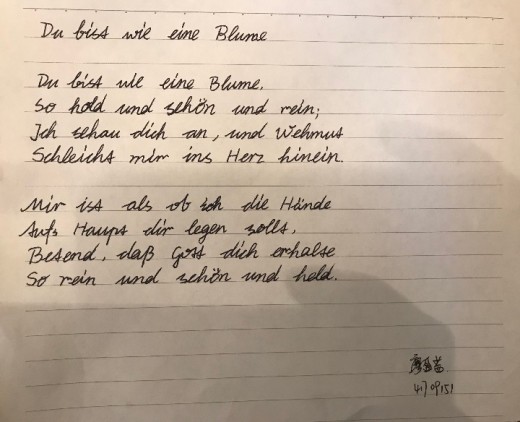 Du bist wie eine Blume
Du bist wie eine Blume,
So hold und schön und rein;
Ich schau dich an, und Wehmut
Schleicht mir ins Herz hinein.
Mir ist als ob ich die Hände
Aufs Haupt dir legen sollt,
Betend, daß Gott dich erhalte
So rein und schön und hold.
41709151